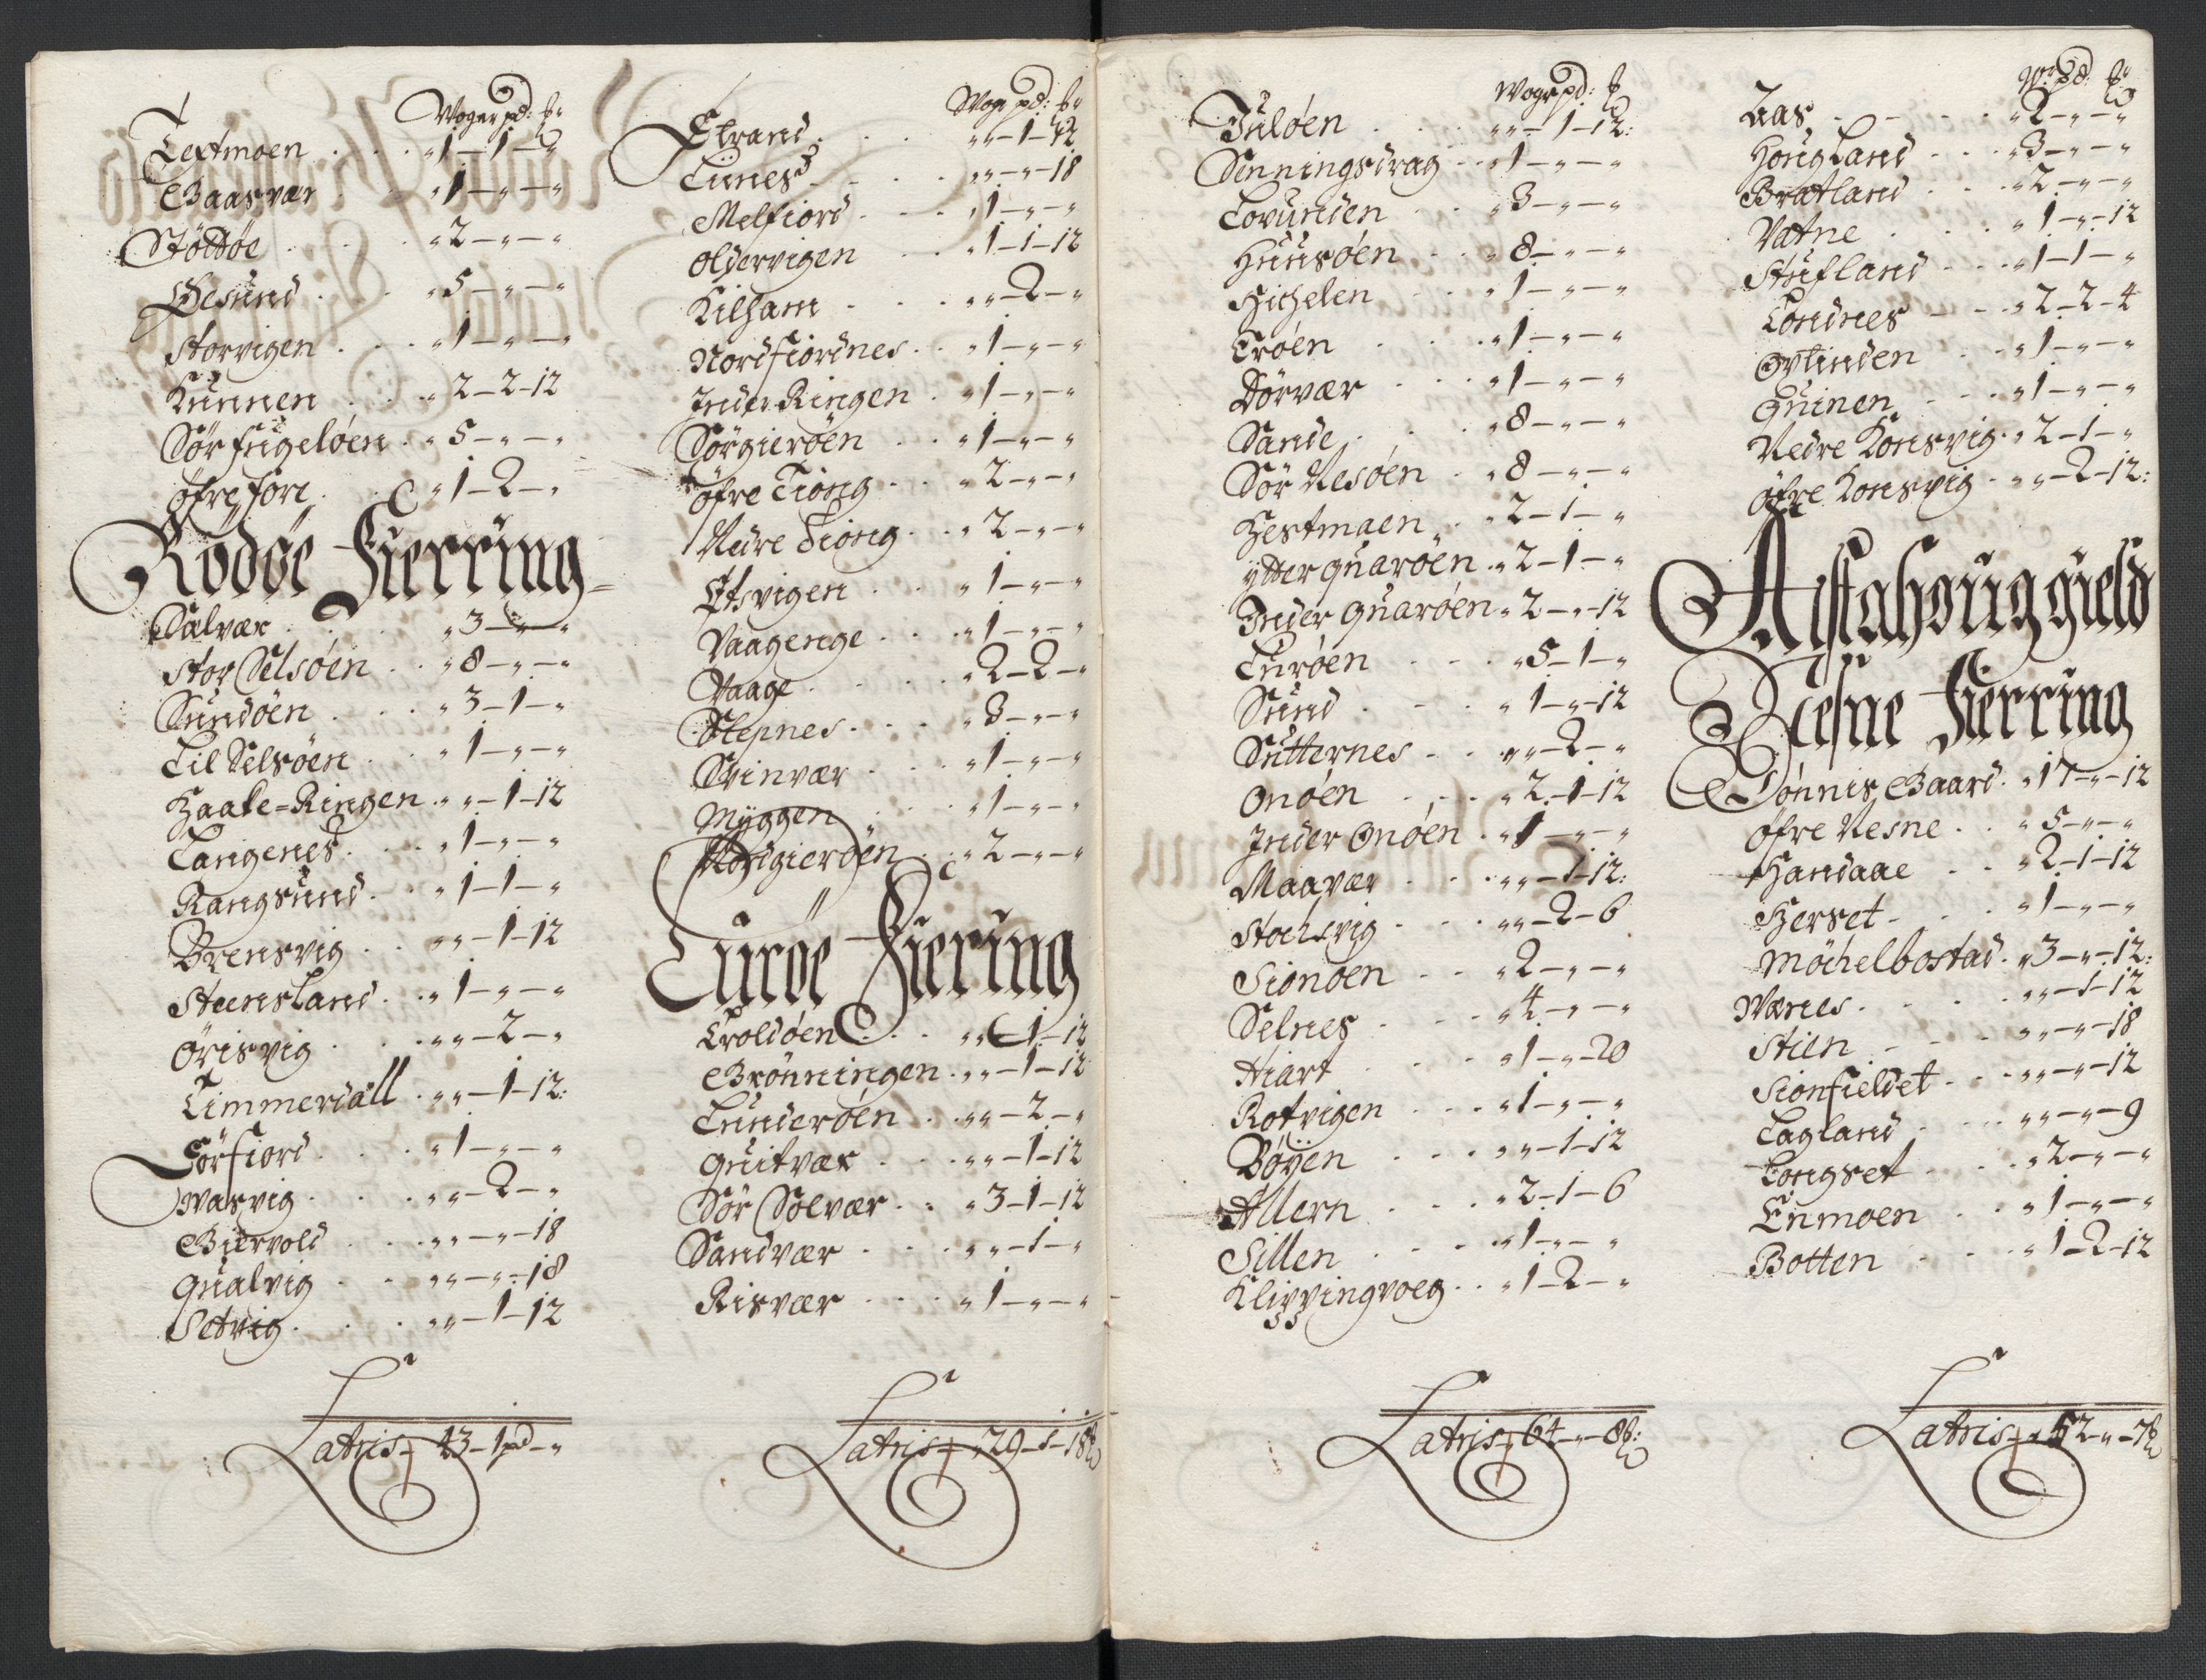 Woger pd: ℔
Textmoen . . . „ 1 – 1 – „
Baasvær . „ 1 – „ – „
Støddøe . . . „ 2 – „ – „
Gesund . . „ 5 – „ – „
Storvigen . . . „ 1 – „ – „
Kunnen . . „ 2 – 2 – 12
Sør fugeløen . „ 5 – „ – „
øfre fore . . „ 1 – 2 – „
Rødøe Fierring
Salvær . . „ 3 – „ – „
Stor Selsøen . . „ 8 – „ – „
Sundøen . . . „ 3 – 1 – „
Lil Selsøen . . „ 1 – „ – „
Haale=Ringen . „ „ – 1 – 12
Langenes . . . „ 1 – „ – „
Rangsund . . „ 1 – 1 – „
Brensvig . . „ „ – 1 – 12
Steensland . . „ 1 – „ – „
Ørisvig . . . „ „ – 2 – „
Timmerdall . „ „ – 1 – 12:
Sørfiord . . . „ 1 – „ – „
Wasvig . . . „ „ – 2 – „
Biervold . . . „ „ – „ – 18
Qualvig . . „ „ – „ – 18
Setvig . . . „ „ – 1 – 12
Latris – 43 – 1 pd – „
Woge pd: ℔
Strand . . . „ „ – 1 – 12
Lunes . . . „ „ – „ – 18
Melfiord . . . „ 1 – „ – „
Oldervigen . . „ 1 – 1 – 12
Kilham . . . „ „ – 2 – „
Nordfiordnes . . „ 1 – „ – „
Inder Ringen . „ 1 – „ – „
Sørgierøen . . „ 1 – „ – „
øfre Tiong . . „ 2 – „ – „
Nedre Tiong . . „ 2 – „ – „
Etvigen . . „ 1 – „ – „
Vaagenge . . . „ 1 – „ – „
Vaage . . . „ 2 – 2 – „
Stepnes . . . „ 3 – „ – „
Svinvær . . . „ 1 – „ – „
Myggen . . „ 1 – „ – „
Nordgierøen . . „ 2 – „ – „
Lurøe Fiering
Troldøen . . „ „ – 1 – 12
Brønningen . „ „ – 1 – 12
Lunderøen . . „ „ – 2 – „
Quitvær . . . „ „ – 1 – 12
Sør Solvær . . „ 3 – 1 – 12
Sandvær . . . „ „ – 1 – „
Risvær . . . „ 1 – „ – „
Latris – „ 29 – 1 – 18 ℔
Woge pd: ℔
Juløen . . . „ „ – 1 – 12:
Senningsdrag . . „ 1 – „ – „
Lovunden . . „ 3 – „ – „
Huusøen . . „ 8 – „ – „
Hichelen . . „ 1 – „ – „
Trøen . . . „ 1 – „ – „
Dørvær . . . „ 1 – „ – „
Sande . . . „ 8 – „ – „
Sør Nesøen . „ 8 – „ – „
Hestmaen . . „ 2 – 1 – „
ytter quarøen . „ 2 – 1 – „
Inder quarøen „ 2 – „ – 12
Lurøen . . . „ 5 – 1 – „
Sund . . . „ 1 – „ – 12
Sutternes . . „ „ – 2 – „
Onøen . . . „ 2 – 1 – 12
Inder Onøen . „ 1 – „ – „
Maavær . . . „ „ – 1 – 12:
Stochvig . . . „ „ – 2 – 6
Sionøen . . „ 2 – „ – „
Selnes . . . „ 4 – „ – „
Hiart . . . „ 1 – „ – 20
Rotvigen . . . „ 1 – „ – „
Bøyen . . . „ „ – 1 – 12
Aldern . . . „ 2 – 1 – 6
Sillen . . . „ 1 – „ – „
Klivvingvoeg . . „ 1 – 2 – „
Latris – 64 – „ – 8 ℔:
W: pd: ℔
Aas . . . . „ 2 – „ – „
Hougland . . . „ 3 – „ – „
Bratland . . . „ 2 – „ – „
Vatne . . . „ 1 – „ – 12
Stufland . . . „ 1 – 1 – „
Londnes . . . „ 2 – 2 – 4
Ovlinden . . „ 1 – „ – „
Quinen . . . „ 1 – „ – „
Nedre Konsvig . „ 2 – 1 – „
øfre Konsvig . „ „ – 2 – 12:
Alstahoug gield
Nesne Fierring
Dønnis Gaard . „ 17 – „ – 12
øfre Nesne . . „ 5 – „ – „
Handaae . . „ 2 – 1 – 12
Herset . . . „ 1 – „ – „
Møchelbostad . „ 3 – „ – 12:
Wænes . . . „ „ – 1 – 12
Stien . . . „ „ – „ – 18
Sionfieldet . . . „ „ – „ – 12
Lagland . . . „ „ – „ – 9
Longset . . . „ 2 – „ – „
Enmoen . . . „ 1 – „ – „
Botten . . . „ 1 – 2 – 12
Latris – „ 52 – „ – 7 ℔